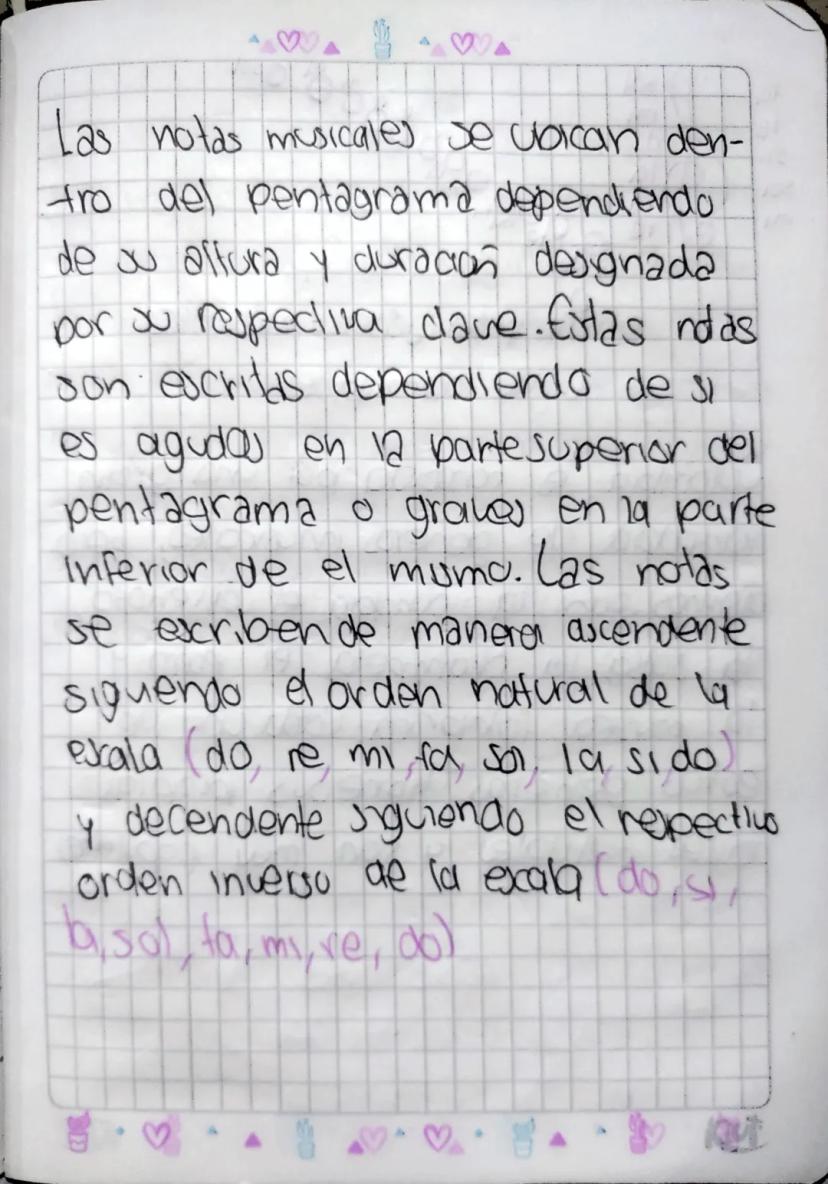 Las notas musicales se ubican den-
tro del pentagrama dependiendo
de su altura y duración designada
por su respectiva clave. Estas notas
son escritas dependiendo de si
es agudas en la parte superior del
pentagrama o graves en la parte
inferior de el mismo. Las notas
se escriben de manera ascendente
siguendo el orden natural de la
escala (do, re, mi, fa, sol, la, si, do)
y decendente siguiendo el respectivo
orden inverso de la escala (do, si,
la, sol, fa, mi, re, do)